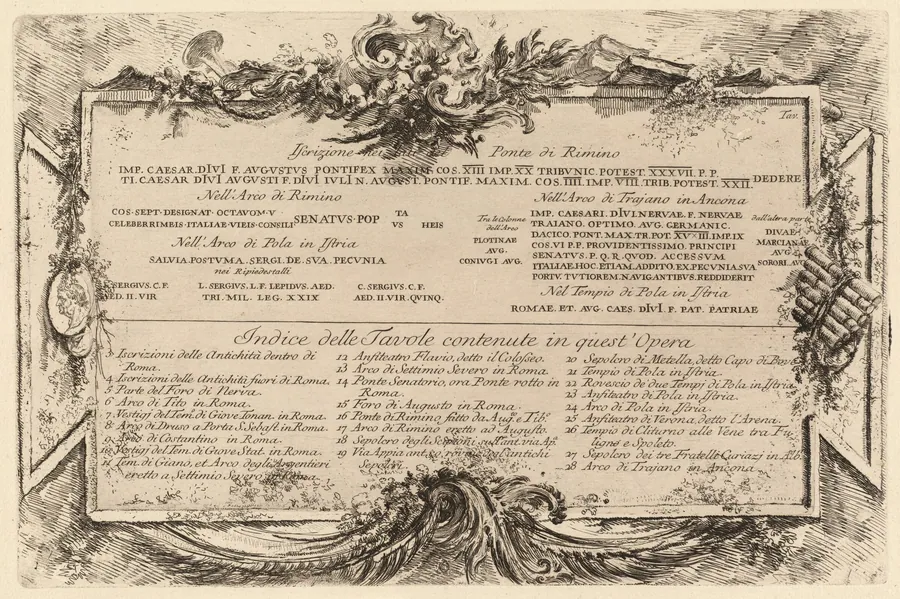 Tav.
Iscrizione nei Ponte di Rimino
IMP. CAESAR. DIVI F. AVGVSTVS PONTIFEX MAXIM. COS. XIII IMP. XX TRIBVNIC. POTEST. XXXVII. P. P.
TI. CAESAR DIVI AVGVSTI F. DIVI IVLI N. AVGVST. PONTIF. MAXIM. COS. IIII. IMP. VIII. TRIB. POTEST. XXII. DEDERE
Nell'Arco di Rimino
COS·SEPT·DESIGNAT·OCTAVOM·V
CELEBERRIMEIS·ITALIAE·VIEIS·CONSILI SENATVS·POP
TA
VS HEIS
Nell'Arco di Pola in Istria
SALVIA. POSTVMA. SERGI. DE. SVA. PECVNIA
nei Ripiedestalli
SERGIVS. C. F.
AED. II. VIR
L. SERGIVS. L. F. LEPIDVS. AED.
TRI. MIL. LEG. XXIX
C. SERGIVS. C. F.
AED. II. VIR. QVINQ.
Nell'Arco di Trajano in Ancona
Tra le Colonne
dell'Arco
PLOTINAE
AVG.
CONIVGI AVG.
IMP. CAESARI. DIVI. NERVAE. F. NERVAE
TRAIANO. OPTIMO. AVG. GERMANIC.
DACICO. PONT. MAX. TR. POT. XVIII. IMP. IX
COS. VI P. P. PROVIDENTISSIMO. PRINCIPI
SENATVS. P. Q. R. QVOD. ACCESSVM
ITALIAE. HOC. ETIAM. ADDITO. EX. PECVNIA. SVA
PORTV. TVTIOREM. NAVIGANTIBVS. REDDIDERIT
dall'altra parte
DIVAE
MARCIANAE
AVG.
SORORI. AVG
Nel Tempio di Pola in Istria
ROMAE. ET. AVG. CAES. DIVI. F. PAT. PATRIAE
Indice delle Tavole contenute in quest'Opera
3 Iscrizioni delle Antichità dentro di
Roma.
4 Iscrizioni delle Antichità fuori di Roma.
5 Parte del Foro di Nerva.
6 Arco di Tito in Roma.
7 Vestigj del Tem. di Giove Tonan. in Roma.
8 Arco di Druso a Porta S. Sebast. in Roma.
9 Arco di Costantino in Roma.
10 Vestigj del Tem. di Giove Stat. in Roma.
11 Tem. di Giano, et Arco degli Argentieri
eretto a Settimio Severo in Roma
12 Anfiteatro Flavio, detto il Colosseo.
13 Arco di Settimio Severo in Roma
14 Ponte Senatorio, ora Ponte rotto in
Roma.
15 Foro di Augusto in Roma.
16 Ponte di Rimino fatto da Aug. e Tib.
17 Arco di Rimino eretto ad Augusto.
18 Sepolcro degli Scipioni sull'ant. via Ap.
19 Via Appia degl'antichi
Sepolcri
20 Sepolcro di Metella, detto Capo di Bove
21 Tempio di Pola in Istria.
22 Rovescio de' due Tempj di Pola in Istria
23 Anfiteatro di Pola in Istria.
24 Arco di Pola in Istria.
25 Anfiteatro di Verona, detto l'Arena.
26 Tempio di Cliturno alle Vene tra Fu-
ligne e Spoleto.
27 Sepolcro dei tre Fratelli Curiazj in Alb.
28 Arco di Trajano in Ancona